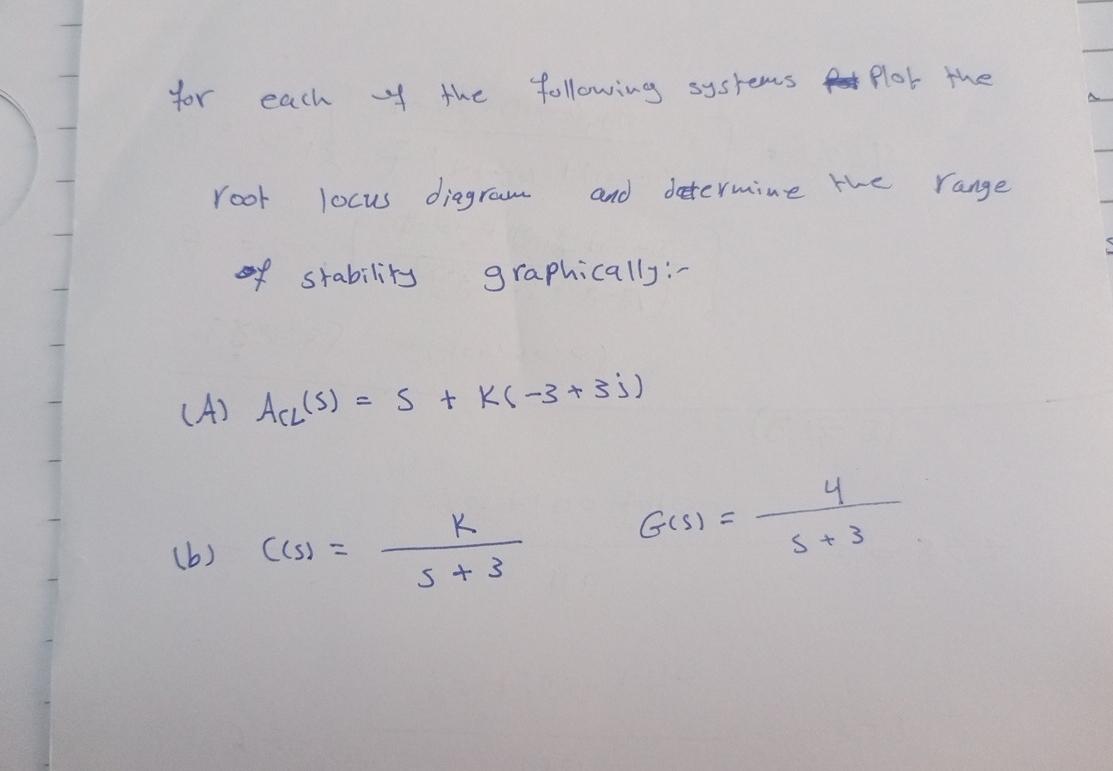 for each of the following systems Plot the
root locus diagram and determine the range
of stability graphically:-
(A) A_CL(S) = S + K(-3+3j)
(b) C(S) = K / (S + 3) G(S) = 4 / (S + 3)